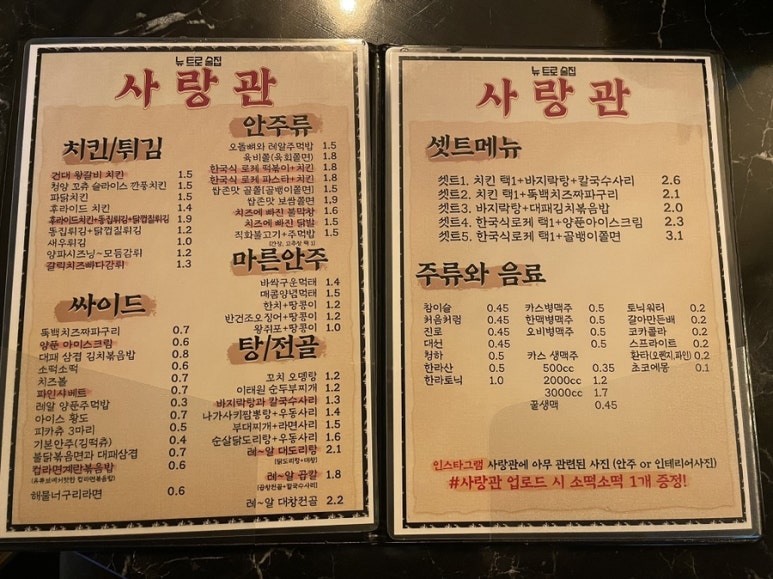 뉴트로 술집
사랑관
치킨/튀김
건대 왕갈비 치킨 1.5
청양 꼬츄 슬라이스 깐풍치킨 1.5
파닭치킨 1.5
후라이드 치킨 1.4
후라이드치킨+똥집튀김+닭껍질튀김 1.9
똥집튀김+닭껍질튀김 1.2
새우튀김 1.0
양파시즈닝~모듬감튀 1.2
갈릭치즈빠다감튀 1.3
싸이드
뚝배치즈짜파구리 0.7
양푼 아이스크림 0.6
대패 삼겹 김치볶음밥 0.8
소떡소떡 0.7
치즈볼 0.7
파인샤베트 0.7
레알 양푼주먹밥 0.3
아이스 황도 0.7
피카츄 3마리 0.5
기본안주(김떡츄) 0.4
불닭볶음면과 대패삼겹 0.7
컵라면계란볶음밥 0.6
해물너구리라면 0.6
안주류
오돌뼈와 레알주먹밥 1.5
육비쫄(육회쫄면) 1.8
한국식 로케 떡볶이+치킨 1.8
한국식 로케 파스타+치킨 1.8
쌉존맛 골쫄(골뱅이쫄면) 1.5
쌉존맛 보쌈쫄면 1.9
치즈에 빠진 불막창 1.6
치즈에 빠진 닭발 1.5
직화불고기+주먹밥 1.5
마른안주
바싹구운먹태 1.4
매콤양념먹태 1.5
한치+땅콩이 1.2
반건조오징어+땅콩이 1.2
왕쥐포+땅콩이 1.0
탕/전골
꼬치 오뎅탕 1.2
이태원 순두부찌개 1.2
바지락탕과 칼국수사리 1.3
나가사키짬뽕탕+우동사리 1.4
부대찌개+라면사리 1.5
순살닭도리탕+우동사리 1.6
레~알 대도리탕 2.1
(닭도리탕+대창)
레~알 곱칼 1.8
(곱창전골+칼국수사리)
레~알 대창전골 2.2
뉴트로 술집
사랑관
셋트메뉴
셋트1. 치킨 택1+바지락탕+칼국수사리 2.6
셋트2. 치킨 택1+뚝배치즈짜파구리 2.1
셋트3. 바지락탕+대패김치볶음밥 2.0
셋트4. 한국식로케 택1+양푼아이스크림 2.3
셋트5. 한국식로케 택1+골뱅이쫄면 3.1
주류와 음료
참이슬 0.45 카스병맥주 0.5 토닉워터 0.2
처음처럼 0.45 한맥병맥주 0.5 갈아만든배 0.2
진로 0.45 오비병맥주 0.5 코카콜라 0.2
대선 0.45 스프라이트 0.2
청하 0.5 카스 생맥주 환타(오렌지,파인) 0.2
한라산 0.5 500cc 0.35 초코에몽 0.1
한라토닉 1.0 2000cc 1.2
3000cc 1.7
꿀생맥 0.45
인스타그램 사랑관에 아무 관련된 사진 (안주 or 인테리어사진)
#사랑관 업로드 시 소떡소떡 1개 증정!